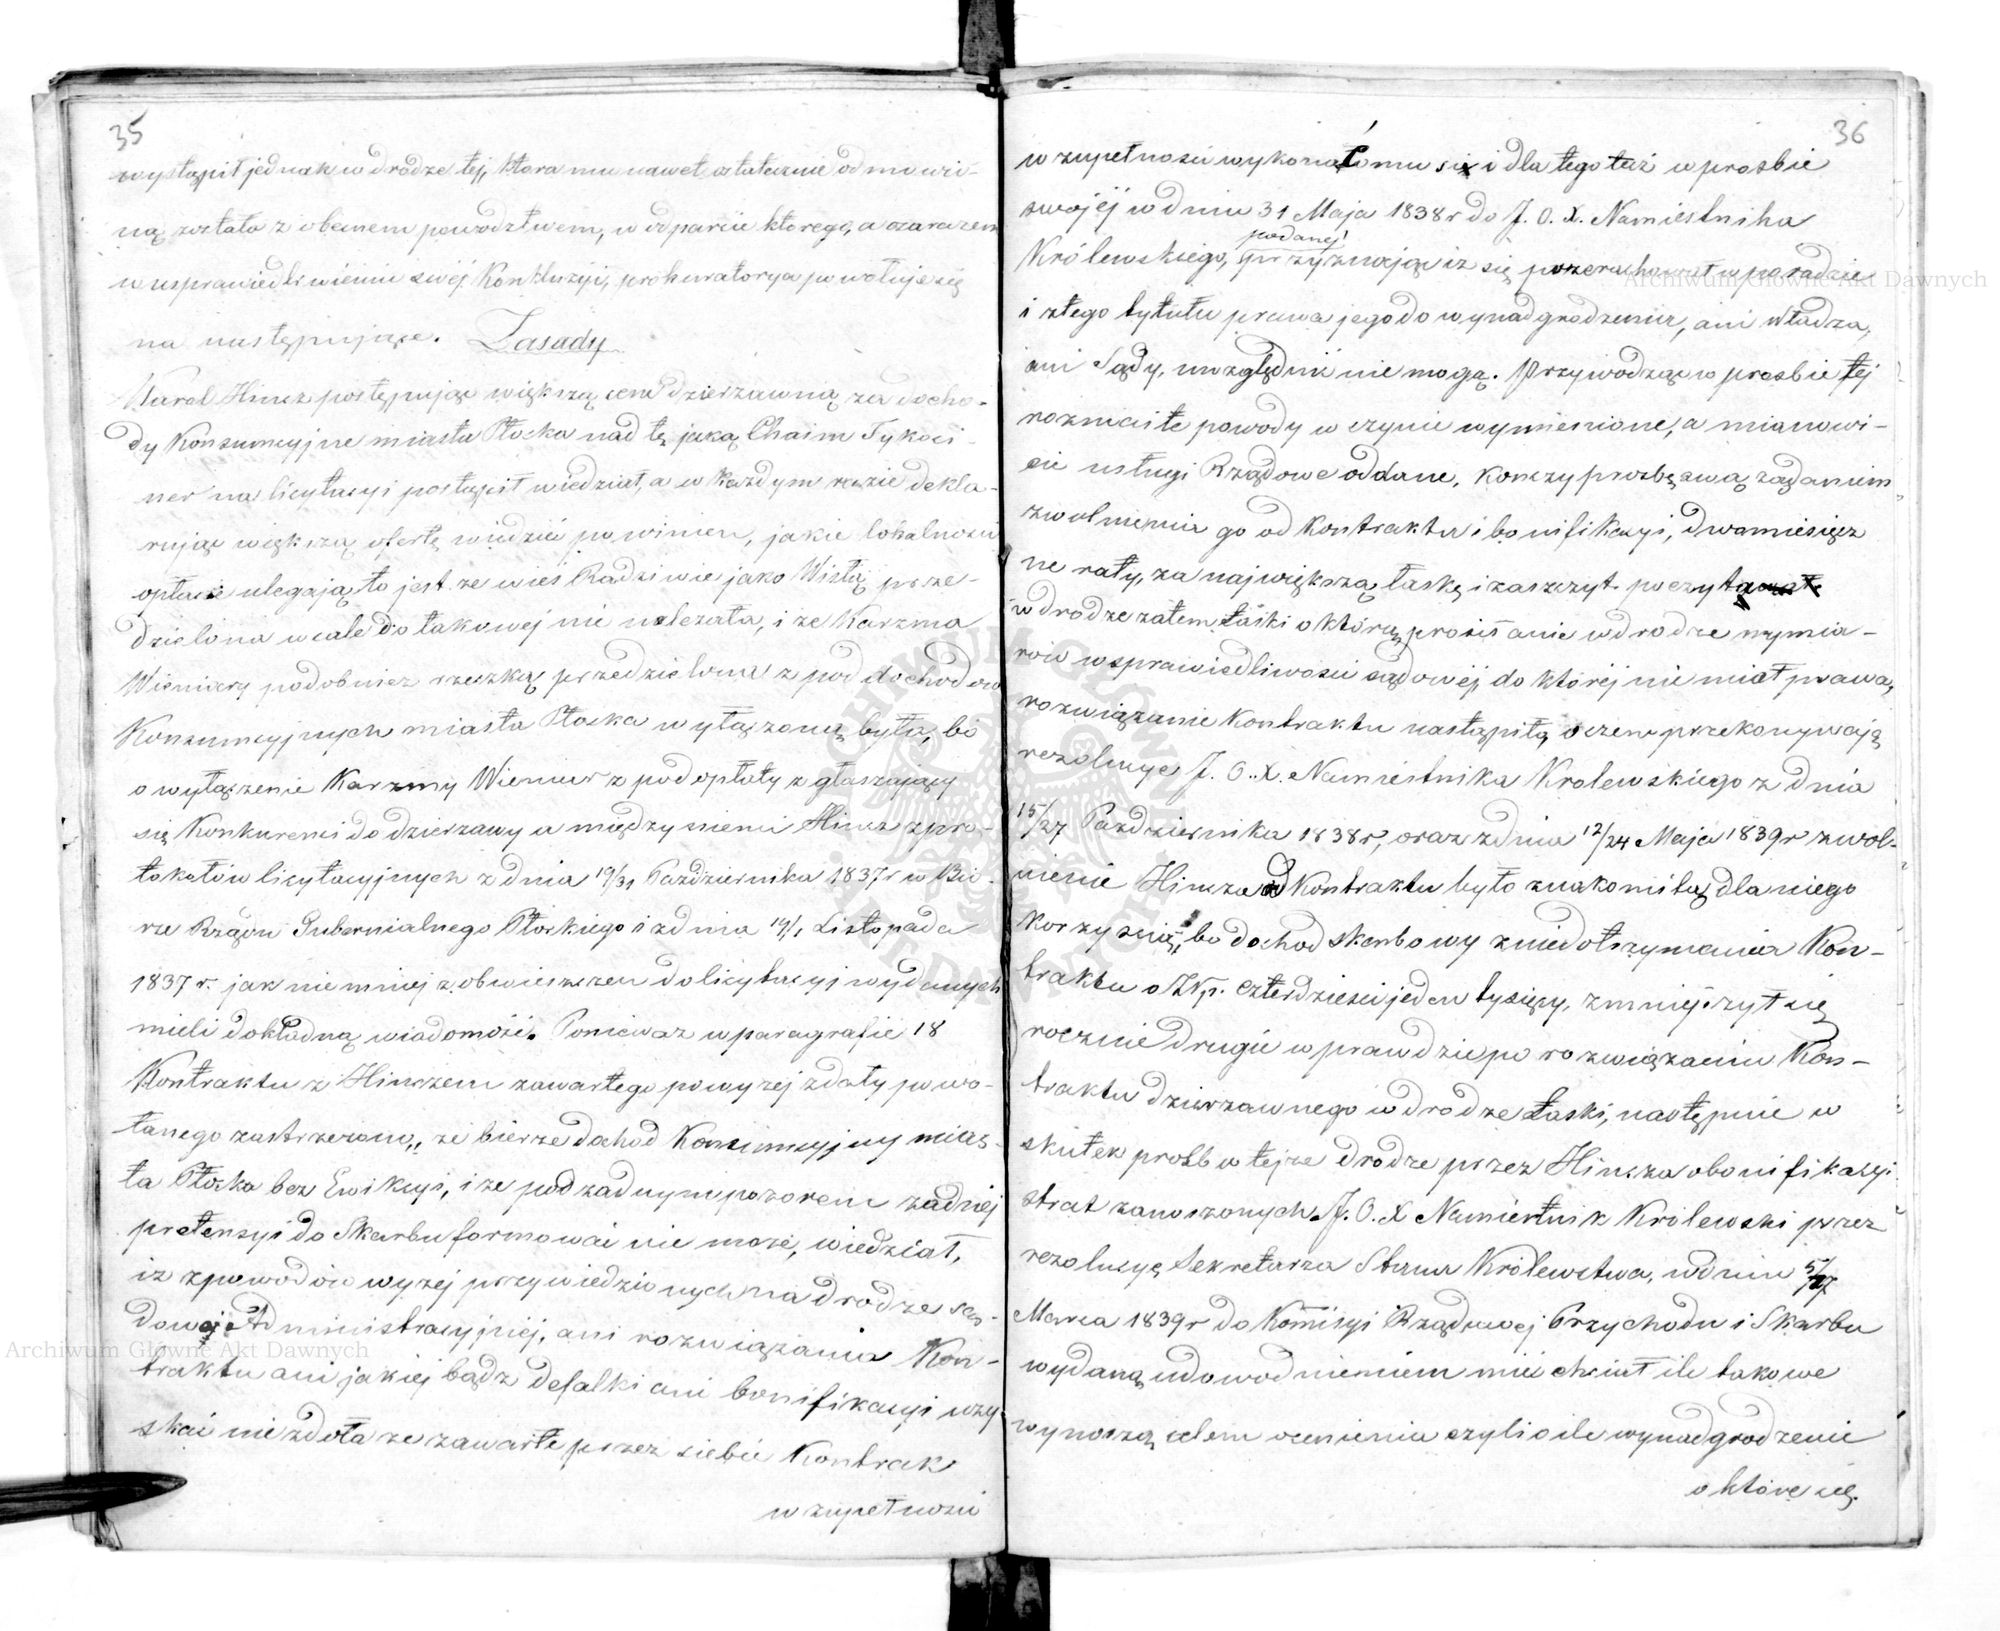 35
wystąpił jednak w drodze tej, ktora mu nawet ostatecznie odmowio-
ną została z obecnem powodztwem, w odparciu ktorego, a oraz razem
w usprawiedliwieniu swej Konkluzyi, prokuratorya powołuje się
na następujące. Zasady
Karol Hincz postępując większą cenę dzierzawną za docho-
dy Konsumcyjne miasta Płocka nad tę jaką Chaim Tykoci-
ner na licytacyi postąpił wiedział, a w każdym razie dekla-
rując większą ofertę wiedzieć powinien, jakie lokalności
opłacie ulegają to jest. ze wieś Radziwie jako Wisłą prze-
dzielona wcale do takowej nie nalezała, i ze Karzma
Winiary podobniez rzeczką przedzielona z pod dochodow
Konsumcyjnych miasta Płocka wyłączoną była, bo
o wyłączenie Karzmy Winiar z pod opłaty zgłaszający
się Konkurenci do dzierzawy a między niemi Hincz z pro-
tokołów licytacyjnych z dnia 19/31 Października 1837 r w Biu-
rze Rządu Gubernialnego Płockiego i z dnia 19/1 Listopada
1837 r. jak niemniej z obwieszczen do licytacyj wydanych
mieli dokładną wiadomość. Poniewaz w paragrafie 18
Kontraktu z Hinczem zawartego powyzej z daty powo-
łanego zastrzezono,, ze bierze dochod Konsumcyjny mias-
ta Płocka bez Ewikcyi, i ze pod zadnym pozorem zadnej
pretensyi do Skarbu formować nie może, wiedział,
iz z powodów wyzej przywiedzionych na drodze są-
dowej i Administracyjnej, ani rozwiązania Kon-
traktu ani jakiej bądz defalki ani bonifikacyi uzy-
skać nie zdoła ze zawarte przez siebie Kontrak
w zupełności
36
w zupełności wykonać mu się i dla tego też w prosbie
swojéj w dniu 31 Maja 1838 r do J. O. X. Namiestnika
podanej
Królewskiego, przyznając iz się przerachował w poradzie
i z tego tytułu prawa jego do wynadgrodzenia, ani Władza,
ani Sądy, uwzględnić nie mogą. Przywodząc w prosbie tej
rozmaite powody w czynie wymienione, a mianowi-
cie usługi Rządowe oddane, konczy prozbę swą żądaniem
zwolnienia go od Kontraktu i bonifikacyi, dwamiesięcz
ne raty, za największą łaskę i zaszczyt poczyta
w drodze zatem łaski o którą prosił a nie w drodze wymia-
rów w sprawiedliwości sądowéj, do któréj nie miał prawa,
rozwiązanie Kontraktu nastąpiło, o czem przekonywają
rezolucye J. O. X. Namiestnika Krolewskiego z dnia
15/27 Pazdziernika 1838 r, oraz z dnia 12/24 Maja 1839 r zwol-
nienie Hincza od Kontraktu było znakomitą dla niego
korzyscią, bo dochod skarbowy z niedotrzymania Kon-
traktu o Złp. czterdziesci jeden tysięcy, zmniejszył się
rocznie drugie wprawdzie po rozwiązaniu Kon-
traktu dzierzawnego w drodze Łaski, następnie w
skutek prosb w tejze drodze przez Hincza o bonifikacyi
strat zanoszonych J. O. X Namiestnik Królewski przez
rezolucyę Sekretarza Stanu Królewstwa, w dniu 5/17
Marca 1839 r do Komisyi Rządowej Przychodu i Skarbu
wydaną udowodnieniem mieć chciał ile takowe
wynoszą celem ocenienia czyli o ile wynadgrodzenie
o które się
Archiwum Główne Akt Dawnych
Archiwum Główne Akt Dawnych
ARCHIWUM GŁÓWNE AKT DAWNYCH